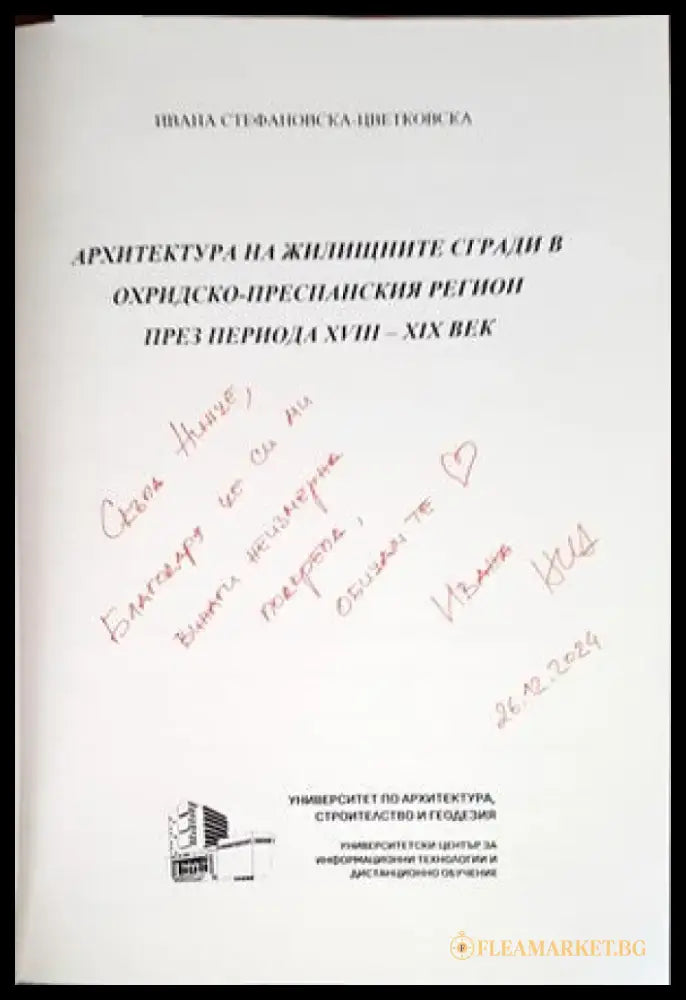 ИВАНА СТЕФАНОВСКА-ЦВЕТКОВСКА
АРХИТЕКТУРА НА ЖИЛИЩНИТЕ СГРАДИ В
ОХРИДСКО-ПРЕСПАНСКИЯ РЕГИОН
ПРЕЗ ПЕРИОДА XVIII – XIX ВЕК
Скъпа
Благодаря че си ми
винаги неизмерна
подкрепа,
обичам те ♡
Ивана
26.12.2024
УНИВЕРСИТЕТ ПО АРХИТЕКТУРА,
СТРОИТЕЛСТВО И ГЕОДЕЗИЯ
УНИВЕРСИТЕТСКИ ЦЕНТЪР ЗА
ИНФОРМАЦИОННИ ТЕХНОЛОГИИ И
ДИСТАНЦИОННО ОБУЧЕНИЕ
FLEAMARKET.BG